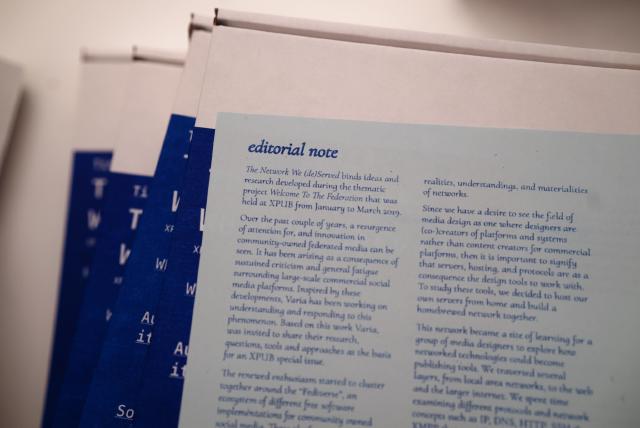 editorial note
The Network We (de)Served binds ideas and
research developed during the thematic
project Welcome To The Federation that was
held at XPUB from January to March 2019.
Over the past couple of years, a resurgence
of attention for, and innovation in
community-owned federated media can be
seen. It has been arising as a consequence of
sustained criticism and general fatigue
surrounding large-scale commercial social
media platforms. Inspired by these
developments, Varia has been working on
understanding and responding to this
phenomenon. Based on this work Varia,
was invited to share their research,
questions, tools and approaches as the basis
for an XPUB special issue.
The renewed enthusiasm started to cluster
together around the "Fediverse", an
ecosystem of different free software
implementations for community owned
social media.
realities, understandings, and materialities
of networks.
Since we have a desire to see the field of
media design as one where designers are
(co-)creators of platforms and systems
rather than content creators for commercial
platforms, then it is important to signify
that servers, hosting, and protocols are as a
consequence the design tools to work with.
To study these tools, we decided to host our
own servers from home and build a
homebrewed network together.
This network became a site of learning for a
group of media designers to explore how
networked technologies could become
publishing tools. We traversed several
layers, from local area networks, to the web
and the larger internet. We spent time
examining different protocols and network
concepts such as IP, DNS, HTTP,
Ti
T
W
W
Au
it
So
W
Au
it